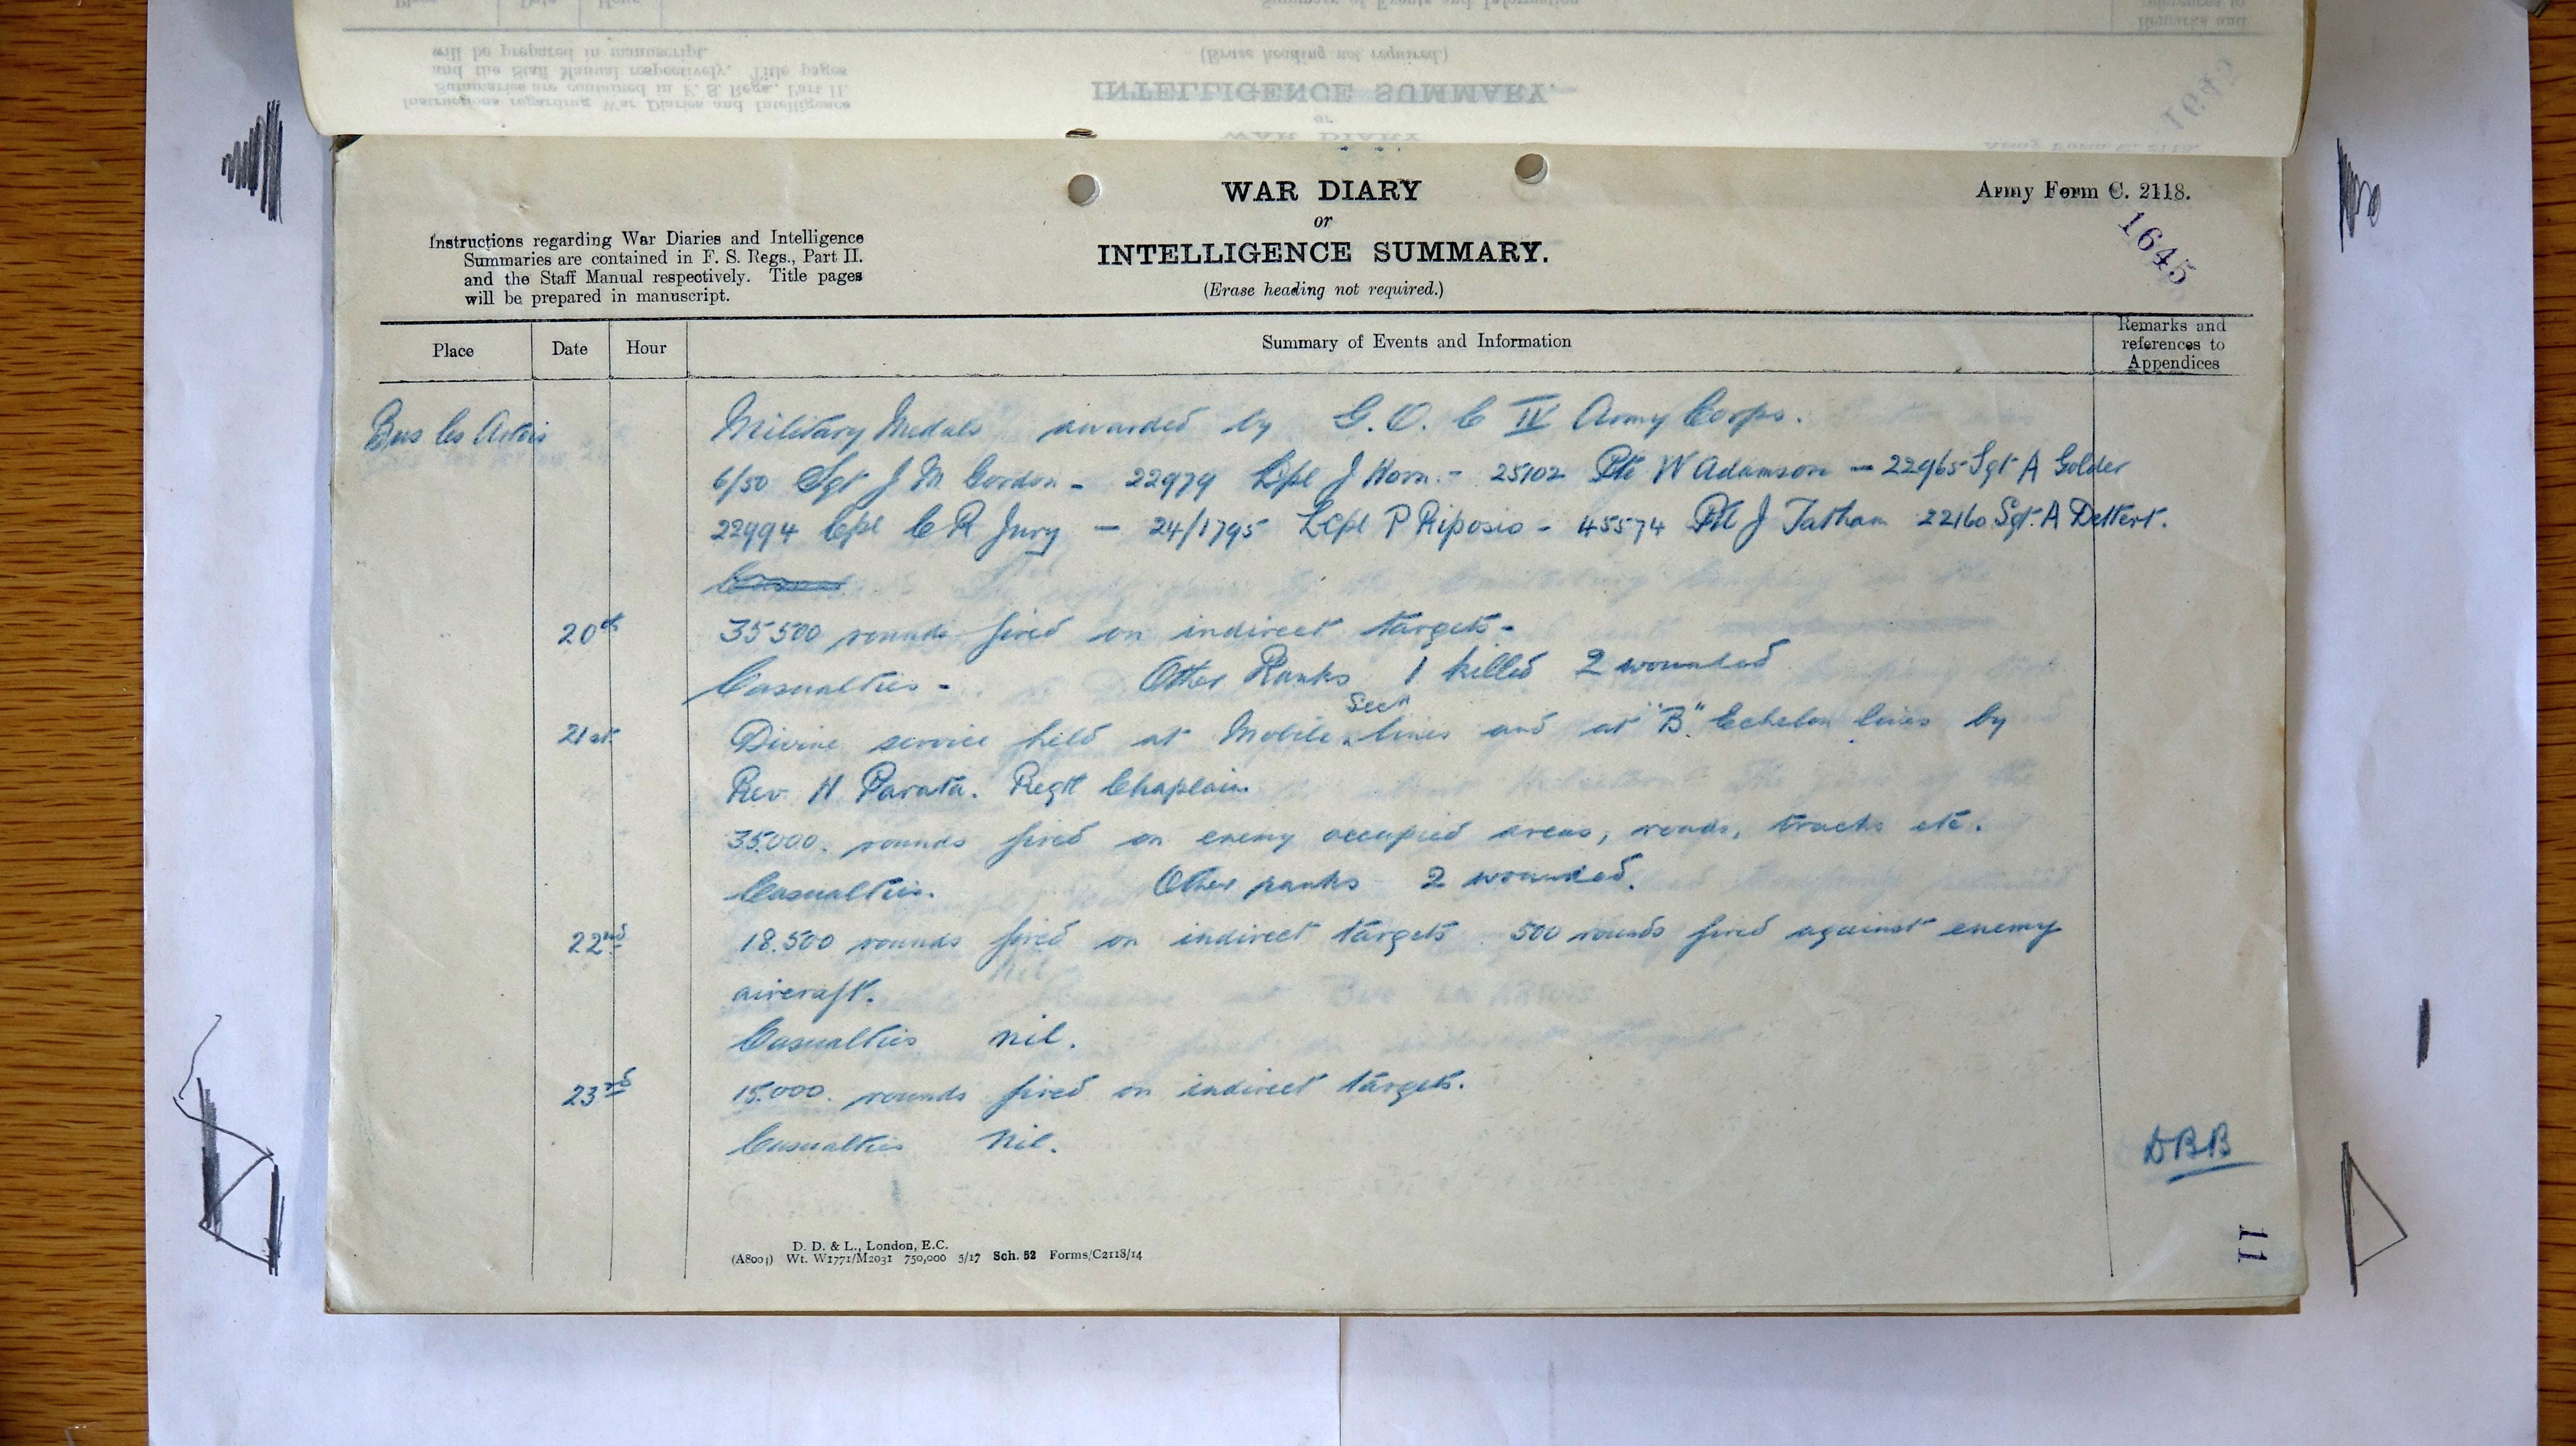 WAR DIARY
or
INTELLIGENCE SUMMARY.
(Erase heading not required.)
Army Form C. 2118.
1645
Instructions regarding War Diaries and Intelligence
Summaries are contained in F. S. Regs., Part II.
and the Staff Manual respectively. Title pages
will be prepared in manuscript.
Place
Date
Hour
Summary of Events and Information
Remarks and
references to
Appendices
Bus les Artois
Military Medals awarded by G.O.C IV Army Corps.
6/50 Sgt J M Gordon - 22979 Lcpl J Horn - 25102 Pte W Adamson - 22965 Sgt A Golder
22994 Cpl C R Jury - 24/1795 LCpl P Riposio - 45574 Pte J Tatham 22160 Sgt. A Dettert.
20th 35500 rounds fired on indirect targets -
Casualties - Other Ranks 1 killed 2 wounded
21st Divine service held at Mobile Secn lines and at "B" Echelon lines by
Rev H Parata. Regtl Chaplain
35.000. rounds fired on enemy occupied areas, roads, tracks etc.
Casualties. Other ranks 2 wounded.
22nd 18.500 rounds fired on indirect targets 500 rounds fired against enemy
aircraft.
Casualties nil.
23rd 15.000. rounds fired on indirect targets.
Casualties Nil.
DBB
11
D. D. & L., London, E.C.
(A8004) Wt. W1771/M2031 750,000 5/17 Sch. 52 Forms/C2118/14